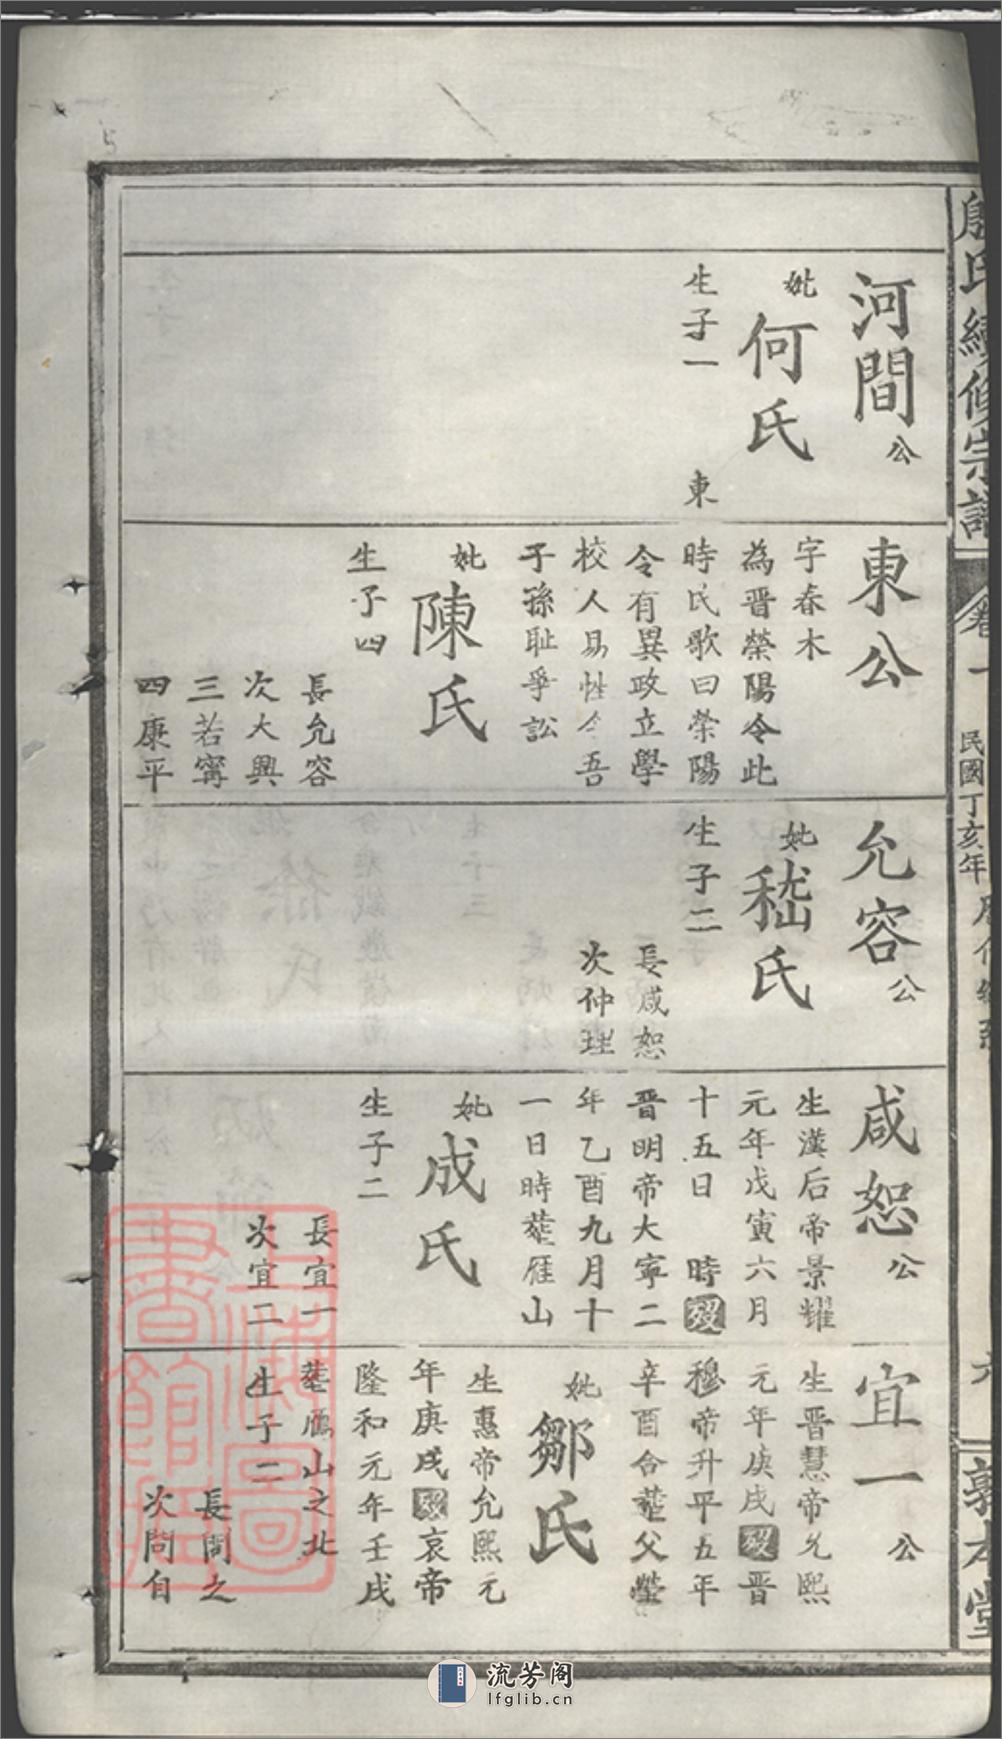 殷氏續修宗譜
卷一
民國丁亥年
敦本堂
河間公
妣何氏
生子一
東
東公
字春木
為晋榮陽令此
時民歌曰榮陽
令有異政立學
校人易性令吾
子孫耻爭訟
妣陳氏
生子四
長允容
次大興
三若寧
四康平
允容公
妣嵇氏
生子二
長咸恕
次仲理
咸恕公
生漢后帝景耀
元年戊寅六月
十五日 時歿
晋明帝大寧二
年乙酉九月十
一日時塟雁山
妣成氏
生子二
長宜一
次宜二
宜一公
生晋慧帝允熙
元年庚戌歿晋
穆帝升平五年
辛酉合塟父塋
妣鄒氏
生惠帝允熙元
年庚戌歿哀帝
隆和元年壬戌
塟鴈山之北
生子二
長問之
次問自
上海圖書館藏
流芳阁
lfglib.cn